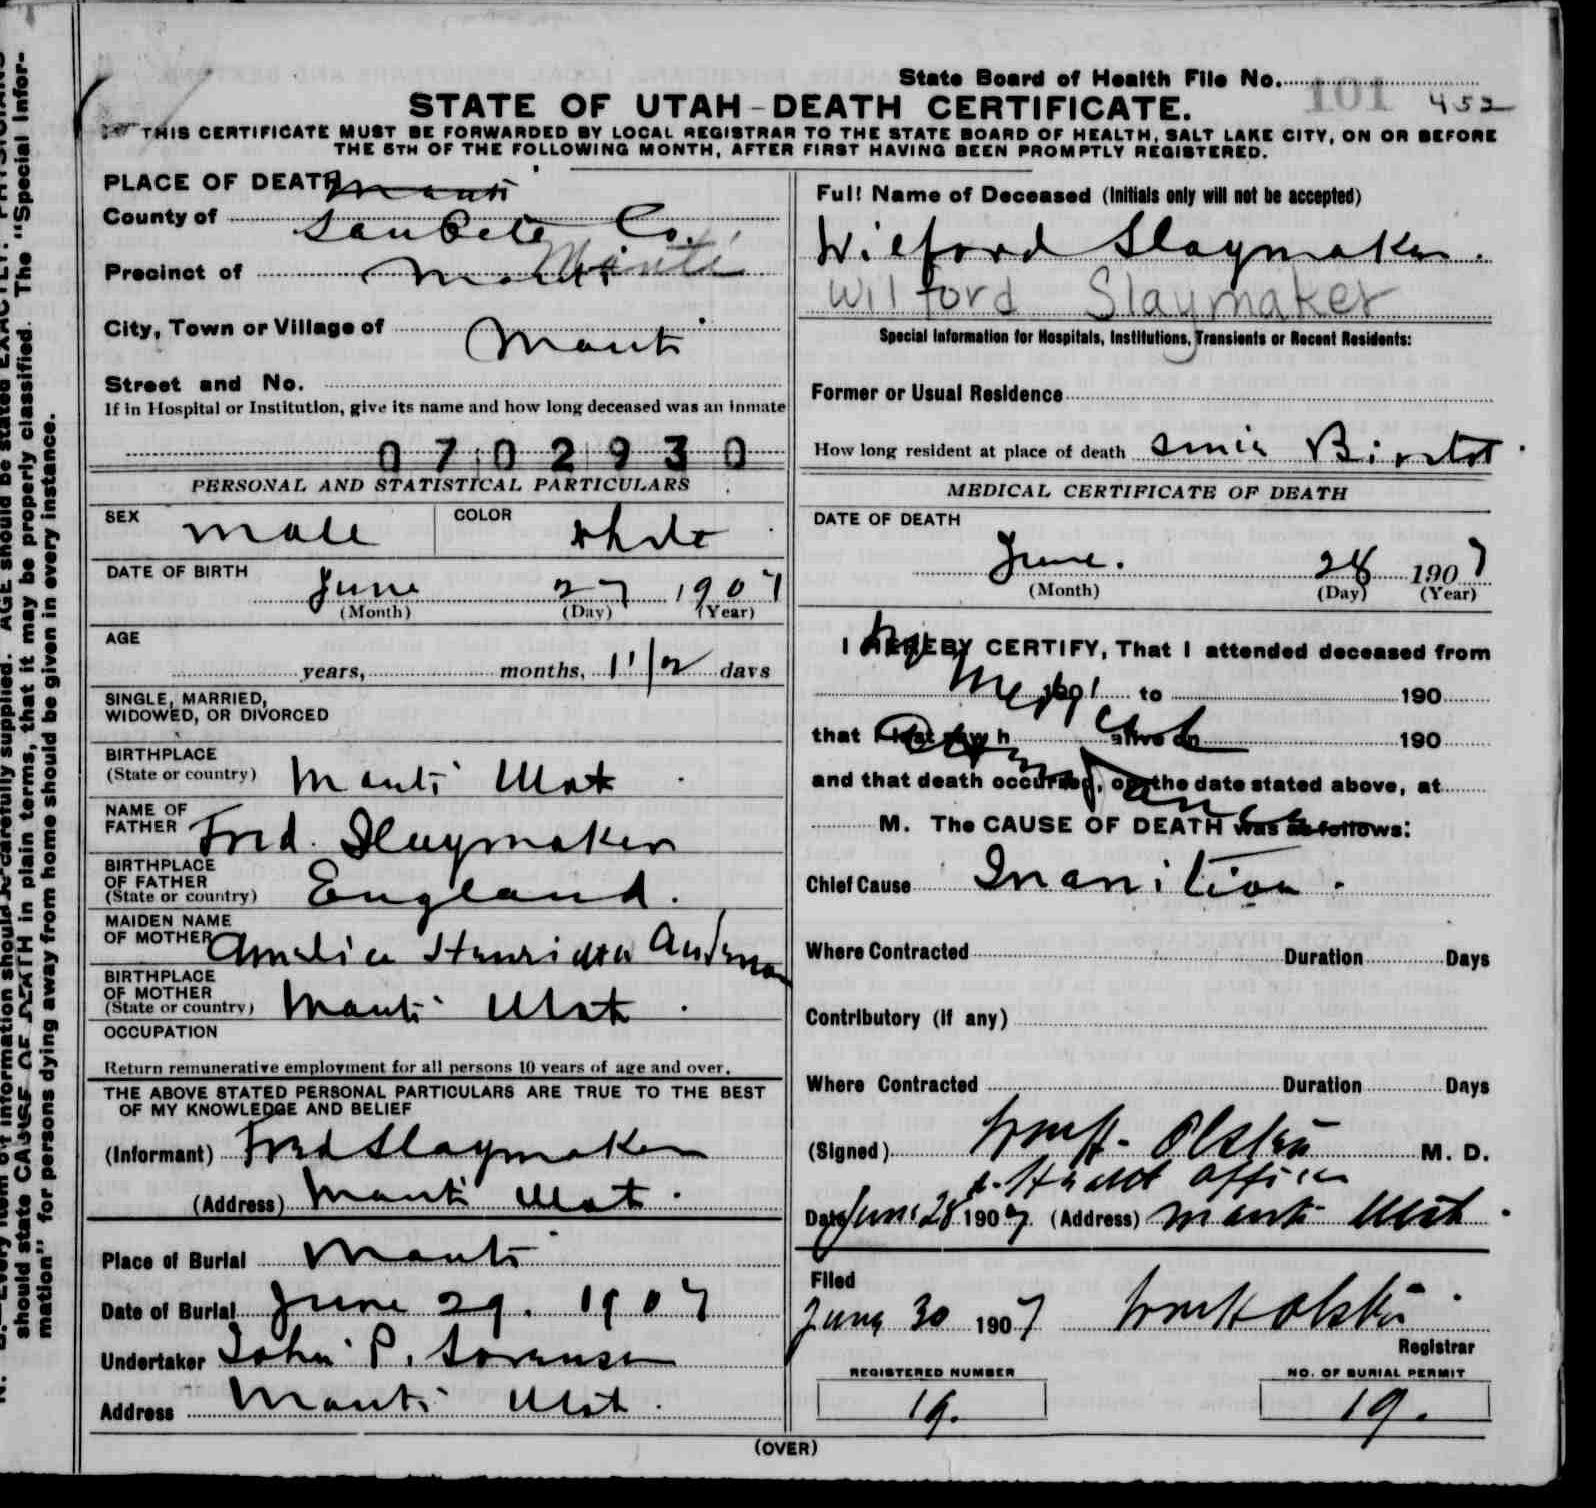 State Board of Health File No. 101 452
STATE OF UTAH - DEATH CERTIFICATE.
THIS CERTIFICATE MUST BE FORWARDED BY LOCAL REGISTRAR TO THE STATE BOARD OF HEALTH, SALT LAKE CITY, ON OR BEFORE
THE 5TH OF THE FOLLOWING MONTH, AFTER FIRST HAVING BEEN PROMPTLY REGISTERED.
PLACE OF DEATH Manti
County of SanPete Co.
Precinct of Manti Manti
City, Town or Village of Manti
Street and No.
If in Hospital or Institution, give its name and how long deceased was an inmate
0702930
PERSONAL AND STATISTICAL PARTICULARS
SEX male COLOR white
DATE OF BIRTH
June 27 1907
(Month) (Day) (Year)
AGE
years, months, 1 1/2 days
SINGLE, MARRIED,
WIDOWED, OR DIVORCED
BIRTHPLACE
(State or country) Manti Utah
NAME OF
FATHER Fred. Slaymaker
BIRTHPLACE
OF FATHER
(State or country) England.
MAIDEN NAME
OF MOTHER Amelia Henrietta Anderson
BIRTHPLACE
OF MOTHER
(State or country) Manti Utah.
OCCUPATION
Return remunerative employment for all persons 10 years of age and over.
THE ABOVE STATED PERSONAL PARTICULARS ARE TRUE TO THE BEST
OF MY KNOWLEDGE AND BELIEF
(Informant) Fred Slaymaker
(Address) Manti Utah.
Place of Burial Manti
Date of Burial June 29. 1907
Undertaker John P. Sorensen
Address Manti Utah.
Full Name of Deceased (Initials only will not be accepted)
Wilford Slaymaker.
Wilford Slaymaker
Special Information for Hospitals, Institutions, Transients or Recent Residents:
Former or Usual Residence
How long resident at place of death since Birth.
MEDICAL CERTIFICATE OF DEATH
DATE OF DEATH
June. 28 1907
(Month) (Day) (Year)
I HEREBY CERTIFY, That I attended deceased from
190 to 190
that I last saw h alive on 190
and that death occurred, on the date stated above, at
M. The CAUSE OF DEATH was as follows:
No
Medical
Attendance
Chief Cause Inanition.
Where Contracted Duration Days
Contributory (if any)
Where Contracted Duration Days
(Signed) Wm H. Olsten M. D.
Health Officer
Date June 28 1907. (Address) Manti Utah.
Filed
June 30 1907 Wm H Olsten.
Registrar
REGISTERED NUMBER
19.
NO. OF BURIAL PERMIT
19.
(OVER)
AGE should be stated EXACTLY. PHYSICIANS
should state CAUSE OF DEATH in plain terms, that it may be properly classified. The "Special Infor-
mation" for persons dying away from home should be given in every instance.